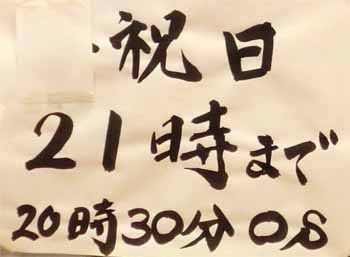 ・祝日
21時まで
20時30分 OS